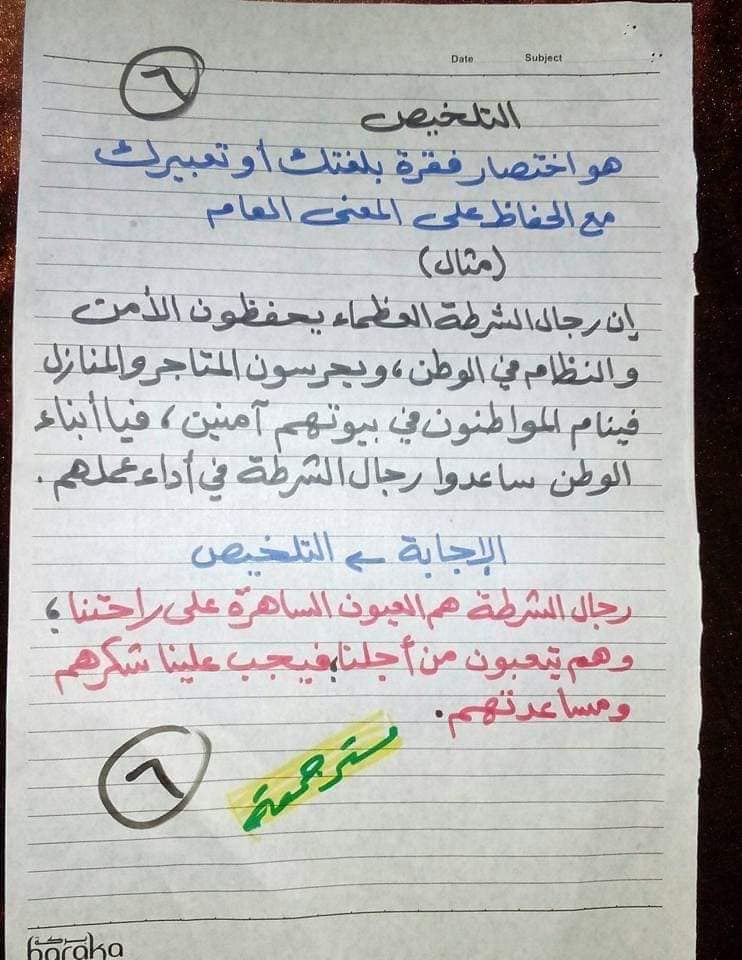 Date Subject
٦
التلخيص
هو اختصار فقرة بلغتك أو تعبيرك
مع الحفاظ على المعنى العام
(مثال)
إن رجال الشرطة العظماء يحفظون الأمن
والنظام في الوطن، ويحرسون المتاجر والمنازل
فينام المواطنون في بيوتهم آمنين، فيا أبناء
الوطن ساعدوا رجال الشرطة في أداء عملهم.
الإجابة ← التلخيص
رجال الشرطة هم العيون الساهرة على راحتنا،
وهم يتعبون من أجلنا، فيجب علينا شكرهم
ومساعدتهم.
مستر جمعة
٦
بركة
baraka